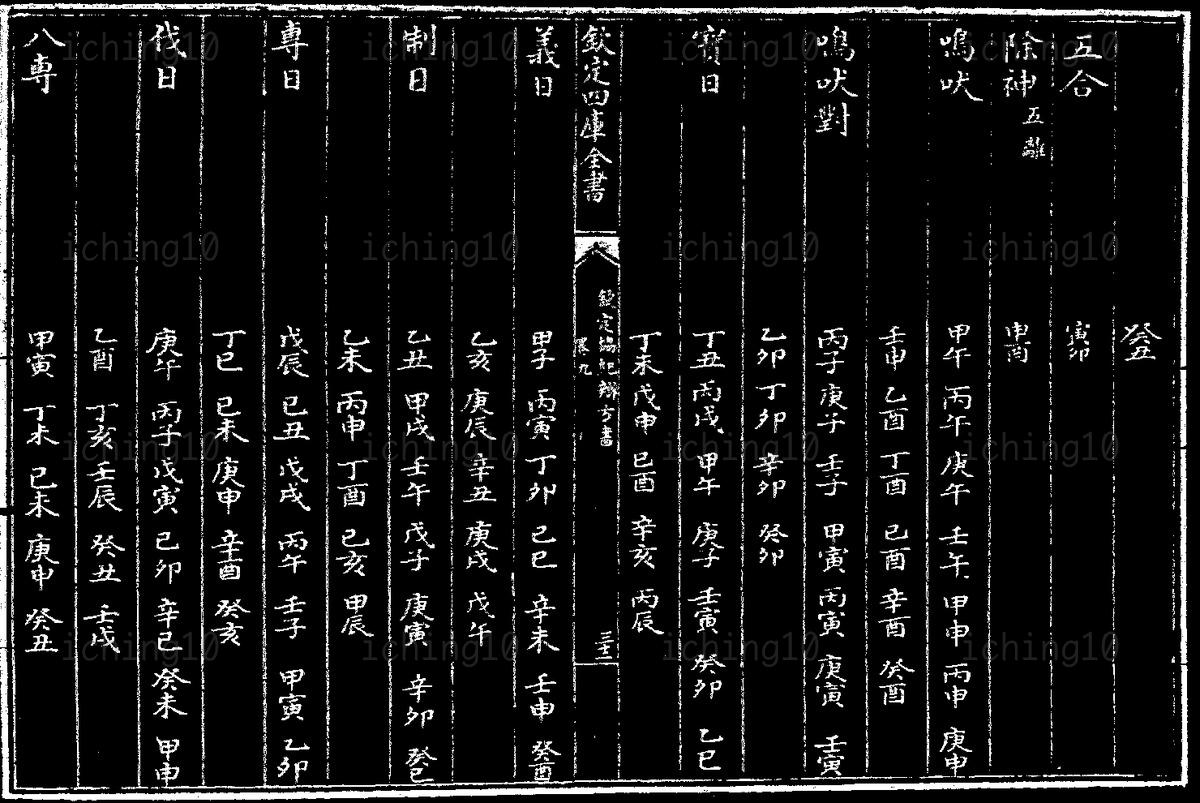 癸丑
五合 寅卯
除神 五離 申酉
鳴吠 甲午 丙午 庚午 壬午 甲申 丙申 庚申
壬申 乙酉 丁酉 己酉 辛酉 癸酉
鳴吠對 丙子 庚子 壬子 甲寅 丙寅 庚寅 壬寅
乙卯 丁卯 辛卯 癸卯
寳日 丁丑 丙戌 甲午 庚子 壬寅 癸卯 乙巳
丁未 戊申 己酉 辛亥 丙辰
欽定四庫全書 欽定協紀辨方書 卷九 三十二
義日 甲子 丙寅 丁卯 己巳 辛未 壬申 癸酉
乙亥 庚辰 辛丑 庚戌 戊午
制日 乙丑 甲戌 壬午 戊子 庚寅 辛卯 癸巳
乙未 丙申 丁酉 己亥 甲辰
專日 戊辰 己丑 戊戌 丙午 壬子 甲寅 乙卯
丁巳 己未 庚申 辛酉 癸亥
伐日 庚午 丙子 戊寅 己卯 辛巳 癸未 甲申
乙酉 丁亥 壬辰 癸丑 壬戌
八專 甲寅 丁未 己未 庚申 癸丑
iching10 iching10 iching10 iching10
iching10 iching10 iching10 iching10
iching10 iching10 iching10 iching10
iching10 iching10 iching10 iching10